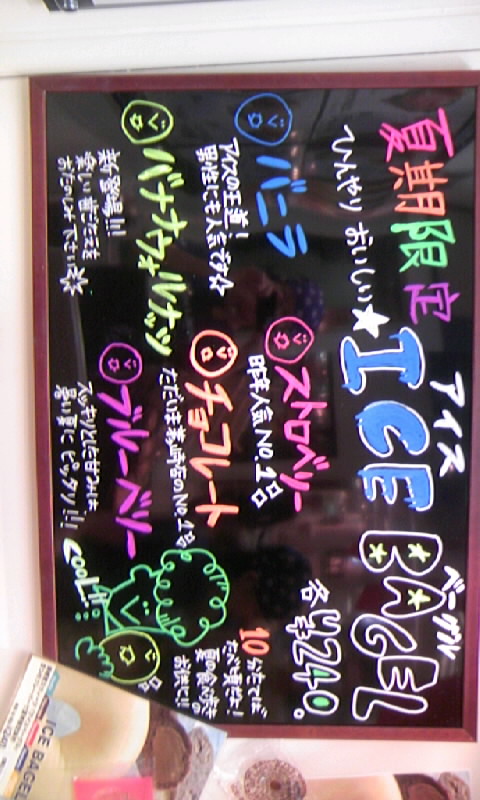 夏期限定
ひんやり おいしい★
アイス
ICE
ベーグル
BAGEL
各¥240。
バニラ
アイスの王道!
男性にも人気です☆
ストロベリー
昨年人気No.1☆
バナナウォールナッツ
新登場!!!
楽しい
おためし下さい
チョコレート
ただいま
店のNo.1☆
ブルーベリー
スッキリとした甘みは
暑い夏にピッタリ!!!
Cool!!
10分たてば
食べ頃だよ!
お供に!!
ICE BAGEL